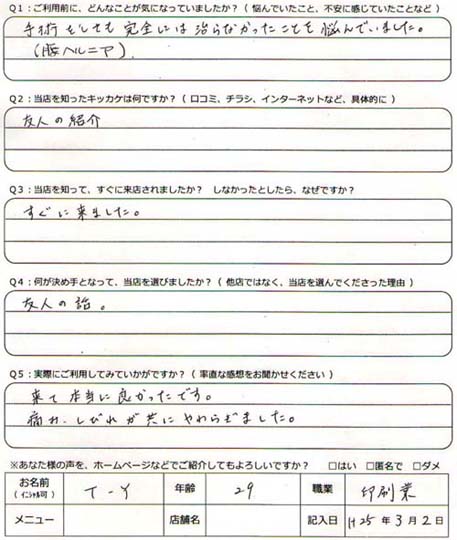 Q1：ご利用前に、どんなことが気になっていましたか？（ 悩んでいたこと、不安に感じていたことなど ）
手術をしても完全には治らなかったことを悩んでいました。
（腰ヘルニア）
Q2：当店を知ったキッカケは何ですか？（ 口コミ、チラシ、インターネットなど、具体的に ）
友人の紹介
Q3：当店を知って、すぐに来店されましたか？　しなかったとしたら、なぜですか？
すぐに来ました。
Q4：何が決め手となって、当店を選びましたか？（ 他店ではなく、当店を選んでくださった理由 ）
友人の話。
Q5：実際にご利用してみていかがですか？（ 率直な感想をお聞かせください ）
来て本当に良かったです。
痛み、しびれが共にやわらぎました。
※あなた様の声を、ホームページなどでご紹介してもよろしいですか？　□はい　□匿名で　□ダメ
お名前（イニシャル可） T-Y 年齢 29 職業 印刷業
メニュー 店舗名 記入日 H25年3月2日